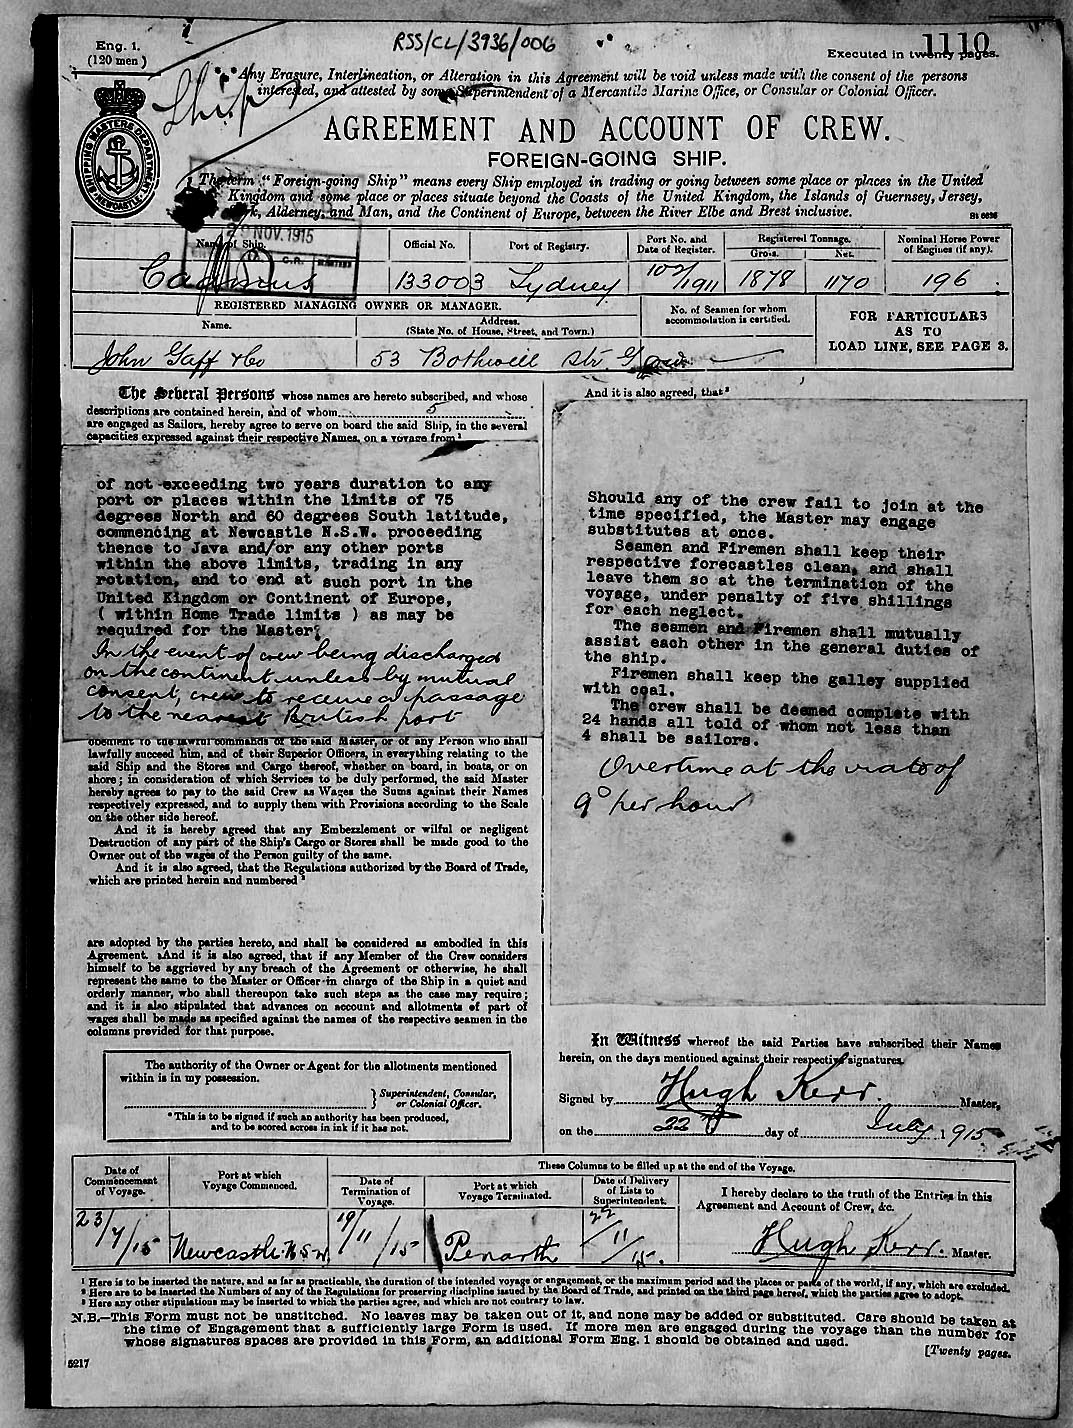 Eng. 1.
(120 men)
RSS/CL/3936/006
1110
Executed in twenty pages.
Ship
Any Erasure, Interlineation, or Alteration in this Agreement will be void unless made with the consent of the persons
interested, and attested by some Superintendent of a Mercantile Marine Office, or Consular or Colonial Officer.
SHIPPING MASTERS DEPARTMENT
NEWCASTLE
AGREEMENT AND ACCOUNT OF CREW.
FOREIGN-GOING SHIP.
The term "Foreign-going Ship" means every Ship employed in trading or going between some place or places in the United
Kingdom and some place or places situate beyond the Coasts of the United Kingdom, the Islands of Guernsey, Jersey,
Sark, Alderney, and Man, and the Continent of Europe, between the River Elbe and Brest inclusive.
NOV. 1915
Name of Ship.
Official No.
Port of Registry.
Port No. and
Date of Register.
Registered Tonnage.
Gross.
Net.
Nominal Horse Power
of Engines (if any).
Cadmus
133003
Sydney
102/1911
1878
1170
196
REGISTERED MANAGING OWNER OR MANAGER.
Name.
Address.
(State No. of House, Street, and Town.)
No. of Seamen for whom
accommodation is certified.
FOR PARTICULARS
AS TO
LOAD LINE, SEE PAGE 3.
John Gaff & Co
53 Bothwell Str.
The Several Persons whose names are hereto subscribed, and whose
descriptions are contained herein, and of whom 5
are engaged as Sailors, hereby agree to serve on board the said Ship, in the several
capacities expressed against their respective Names, on a voyage from¹
of not exceeding two years duration to any
port or places within the limits of 75
degrees North and 60 degrees South latitude,
commencing at Newcastle N.S.W. proceeding
thence to Java and/or any other ports
within the above limits, trading in any
rotation, and to end at such port in the
United Kingdom or Continent of Europe,
( within Home Trade limits ) as may be
required for the Master;
In the event of crew being discharged
on the continent unless by mutual
consent, crew to receive a passage
to the nearest British port
obedient to the lawful commands of the said Master, or of any Person who shall
lawfully succeed him, and of their Superior Officers, in everything relating to the
said Ship and the Stores and Cargo thereof, whether on board, in boats, or on
shore; in consideration of which Services to be duly performed, the said Master
hereby agrees to pay to the said Crew as Wages the Sums against their Names
respectively expressed, and to supply them with Provisions according to the Scale
on the other side hereof.
And it is hereby agreed that any Embezzlement or wilful or negligent
Destruction of any part of the Ship's Cargo or Stores shall be made good to the
Owner out of the wages of the Person guilty of the same.
And it is also agreed, that the Regulations authorized by the Board of Trade,
which are printed herein and numbered ²
are adopted by the parties hereto, and shall be considered as embodied in this
Agreement. And it is also agreed, that if any Member of the Crew considers
himself to be aggrieved by any breach of the Agreement or otherwise, he shall
represent the same to the Master or Officer in charge of the Ship in a quiet and
orderly manner, who shall thereupon take such steps as the case may require;
and it is also stipulated that advances on account and allotments of part of
wages shall be made as specified against the names of the respective seamen in the
columns provided for that purpose.
The authority of the Owner or Agent for the allotments mentioned
within is in my possession.
Superintendent, Consular,
or Colonial Officer.
* This is to be signed if such an authority has been produced,
and to be scored across in ink if it has not.
And it is also agreed, that ³
Should any of the crew fail to join at the
time specified, the Master may engage
substitutes at once.
Seamen and Firemen shall keep their
respective forecastles clean, and shall
leave them so at the termination of the
voyage, under penalty of five shillings
for each neglect.
The seamen and Firemen shall mutually
assist each other in the general duties of
the ship.
Firemen shall keep the galley supplied
with coal.
The crew shall be deemed complete with
24 hands all told of whom not less than
4 shall be sailors.
Overtime at the rate of
9ᴰ per hour
In Witness whereof the said Parties have subscribed their Names
herein, on the days mentioned against their respective signatures.
Signed by Hugh Kerr. Master,
on the 22 day of July 1915
Date of
Commencement
of Voyage.
Port at which
Voyage Commenced.
These Columns to be filled up at the end of the Voyage.
Date of
Termination of
Voyage.
Port at which
Voyage Terminated.
Date of Delivery
of Lists to
Superintendent.
I hereby declare to the truth of the Entries in this
Agreement and Account of Crew, &c.
23/7/15
Newcastle N S W
19/11/15
Penarth
22/11/15.
Hugh Kerr. Master.
¹ Here is to be inserted the nature, and as far as practicable, the duration of the intended voyage or engagement, or the maximum period and the places or parts of the world, if any, which are excluded.
² Here are to be inserted the Numbers of any of the Regulations for preserving discipline issued by the Board of Trade, and printed on the third page hereof, which the parties agree to adopt.
³ Here any other stipulations may be inserted to which the parties agree, and which are not contrary to law.
N.B.—This Form must not be unstitched. No leaves may be taken out of it, and none may be added or substituted. Care should be taken at
the time of Engagement that a sufficiently large Form is used. If more men are engaged during the voyage than the number for
whose signatures spaces are provided in this Form, an additional Form Eng. 1 should be obtained and used.
5217
[Twenty pages.